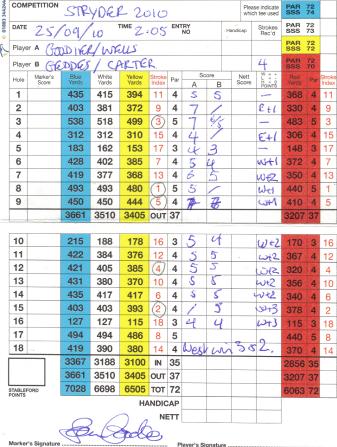 COMPETITION STRYDER 2010 Please indicate which tee used PAR 72 SSS 74
DATE 25/09/10 TIME 2.05 ENTRY NO Handicap Strokes Rec'd PAR 72 SSS 73
Player A GOODIER/WELLS PAR 72 SSS 72
Player B GEDDES / CARTER 4 PAR 72 SSS 70
Hole Marker's Score Blue Yards White Yards Yellow Yards Stroke Index Par Score A B Nett Score POINTS Red Yards Par Stroke Index
1 435 415 394 11 4 5 5 368 4 11
2 403 381 372 9 4 7 / 330 4 9
3 538 498 499 3 5 7 483 5 3
4 312 312 310 15 4 4 / 306 4 15
5 183 162 153 17 3 4 3 148 3 17
6 428 402 385 7 4 5 4 W+1 372 4 7
7 419 377 368 13 4 6 5 W+2 350 4 13
8 493 493 480 1 5 5 / W+1 440 5 1
9 450 450 444 5 4 W+1 410 4 5
3661 3510 3405 OUT 37 3207 37
10 215 188 178 16 3 5 4 W+2 170 3 16
11 422 384 376 12 4 5 5 W+2 367 4 12
12 421 405 385 4 4 5 5 W+2 320 4 4
13 431 380 370 10 4 5 5 W+2 356 4 10
14 435 417 417 6 4 5 5 W+2 340 4 6
15 403 403 393 2 4 / 5 W+3 378 4 2
16 127 127 115 18 3 4 4 W+3 115 3 18
17 494 494 486 8 5 440 5 8
18 419 390 380 14 4 West win 3 & 2. 370 4 14
3367 3188 3100 IN 35 2856 35
3661 3510 3405 OUT 37 3207 37
STABLEFORD POINTS 7028 6698 6505 TOT 72 6063 72
HANDICAP
NETT
Marker's Signature Player's Signature